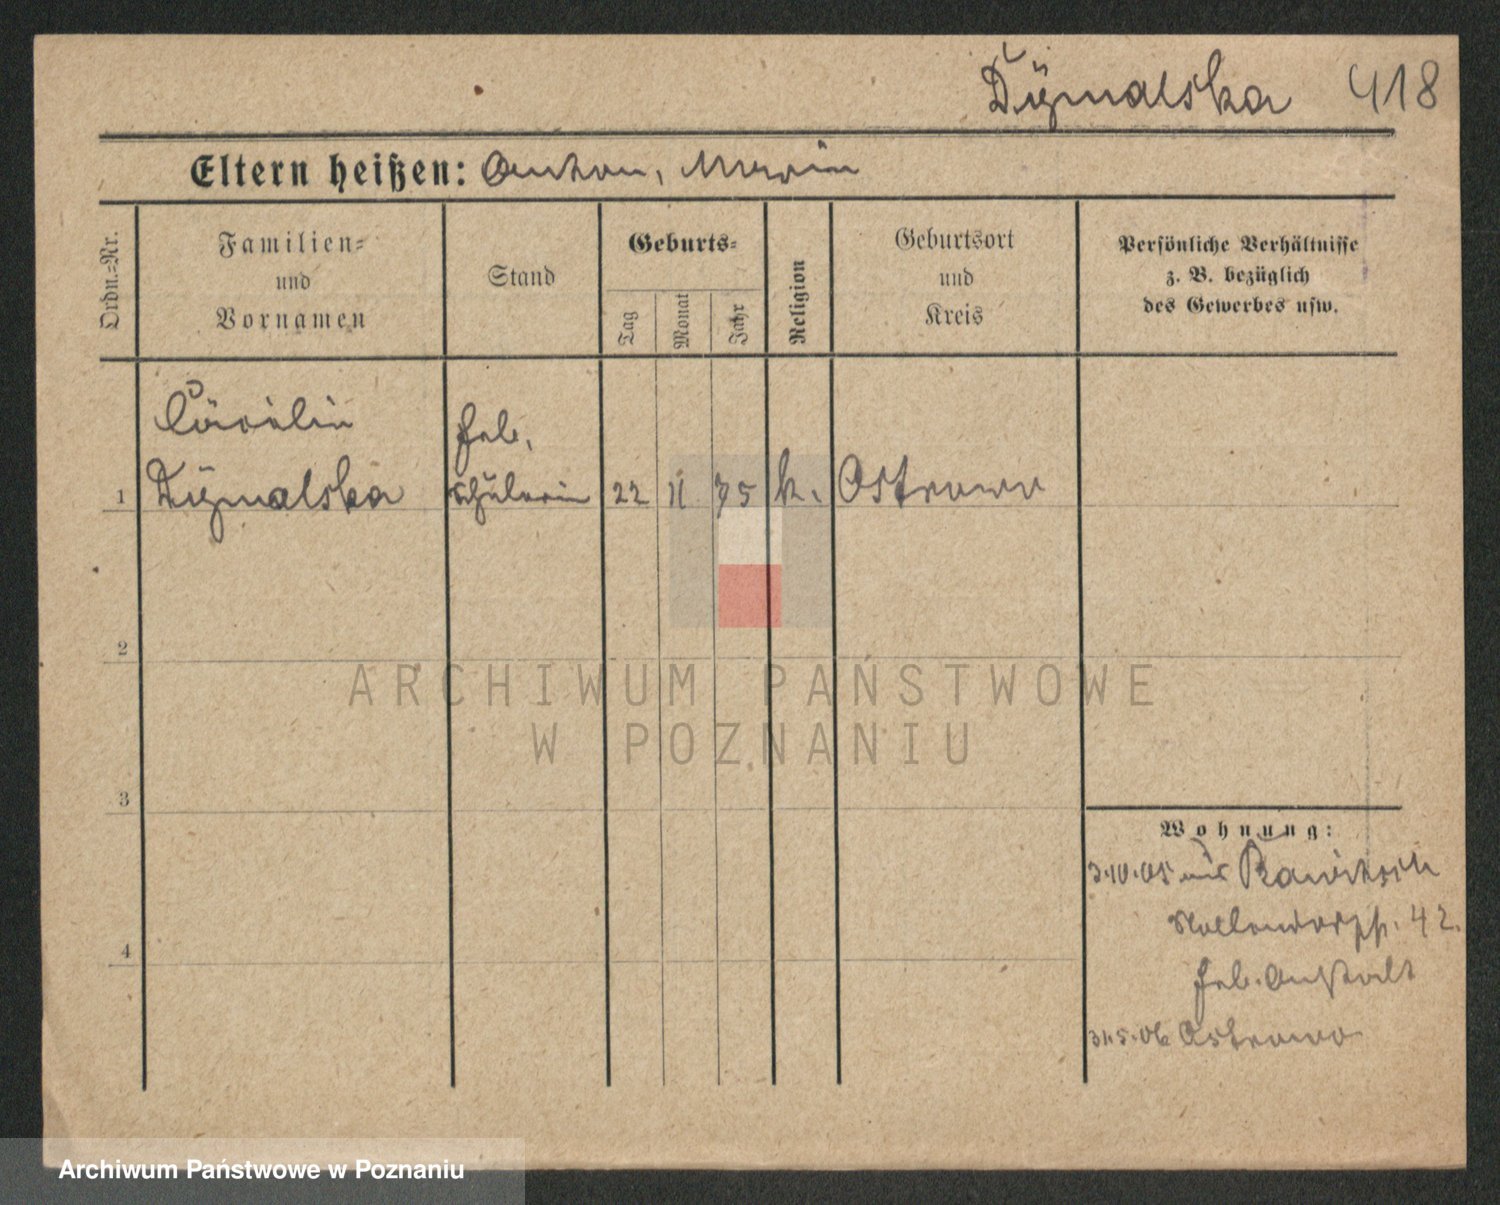 Dÿmalska 418
Eltern heißen: Anton, Maria
Ordn.-Nr.
Familien-
und
Vornamen
Stand
Geburts-
Tag
Monat
Jahr
Religion
Geburtsort
und
Kreis
Persönliche Verhältnisse
z. B. bezüglich
des Gewerbes usw.
Cäcilie
Heb.
1 Dÿmalska schülerin 22 11 75 k. Ostrowo
2
3
4
Wohnung:
3.10.05 aus Rawitsch
42.
Heb. Anstalt
31.5.06 Ostrowo
ARCHIWUM PAŃSTWOWE
W POZNANIU
Archiwum Państwowe w Poznaniu